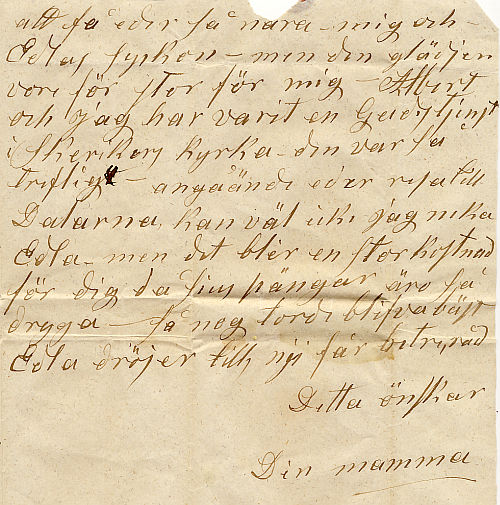 att få eder så nära mig och
Edlas syskon – men den glädjen
vore för stor för mig – Albert
och jag har varit en Gudstjenst
i Skerikes kyrka – den var så
triflig – angåände eder resa till
Dalarna, kan väl icke jag neka
Edla – men det blir en stor kostnad
för dig då pängar äro så
dryga – så nog torde blifva bäst
Edla dröjer till ni får
Detta önskar
Din mamma